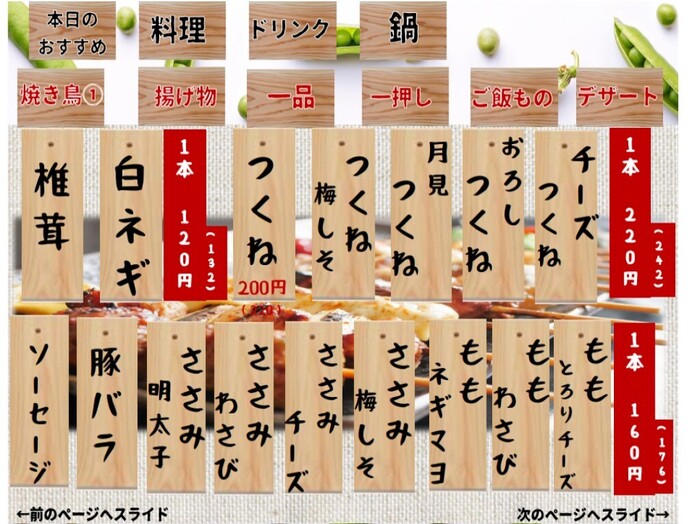 本日の
おすすめ
料理
ドリンク
鍋
焼き鳥①
揚げ物
一品
一押し
ご飯もの
デザート
椎茸
白ネギ
1本 120円
(132)
つくね
200円
つくね
梅しそ
月見
つくね
おろし
つくね
チーズ
つくね
1本 220円
(242)
ソーセージ
豚バラ
ささみ
明太子
ささみ
わさび
ささみ
チーズ
ささみ
梅しそ
もも
ネギマヨ
もも
わさび
もも
とろりチーズ
1本 160円
(176)
←前のページへスライド
次のページへスライド→